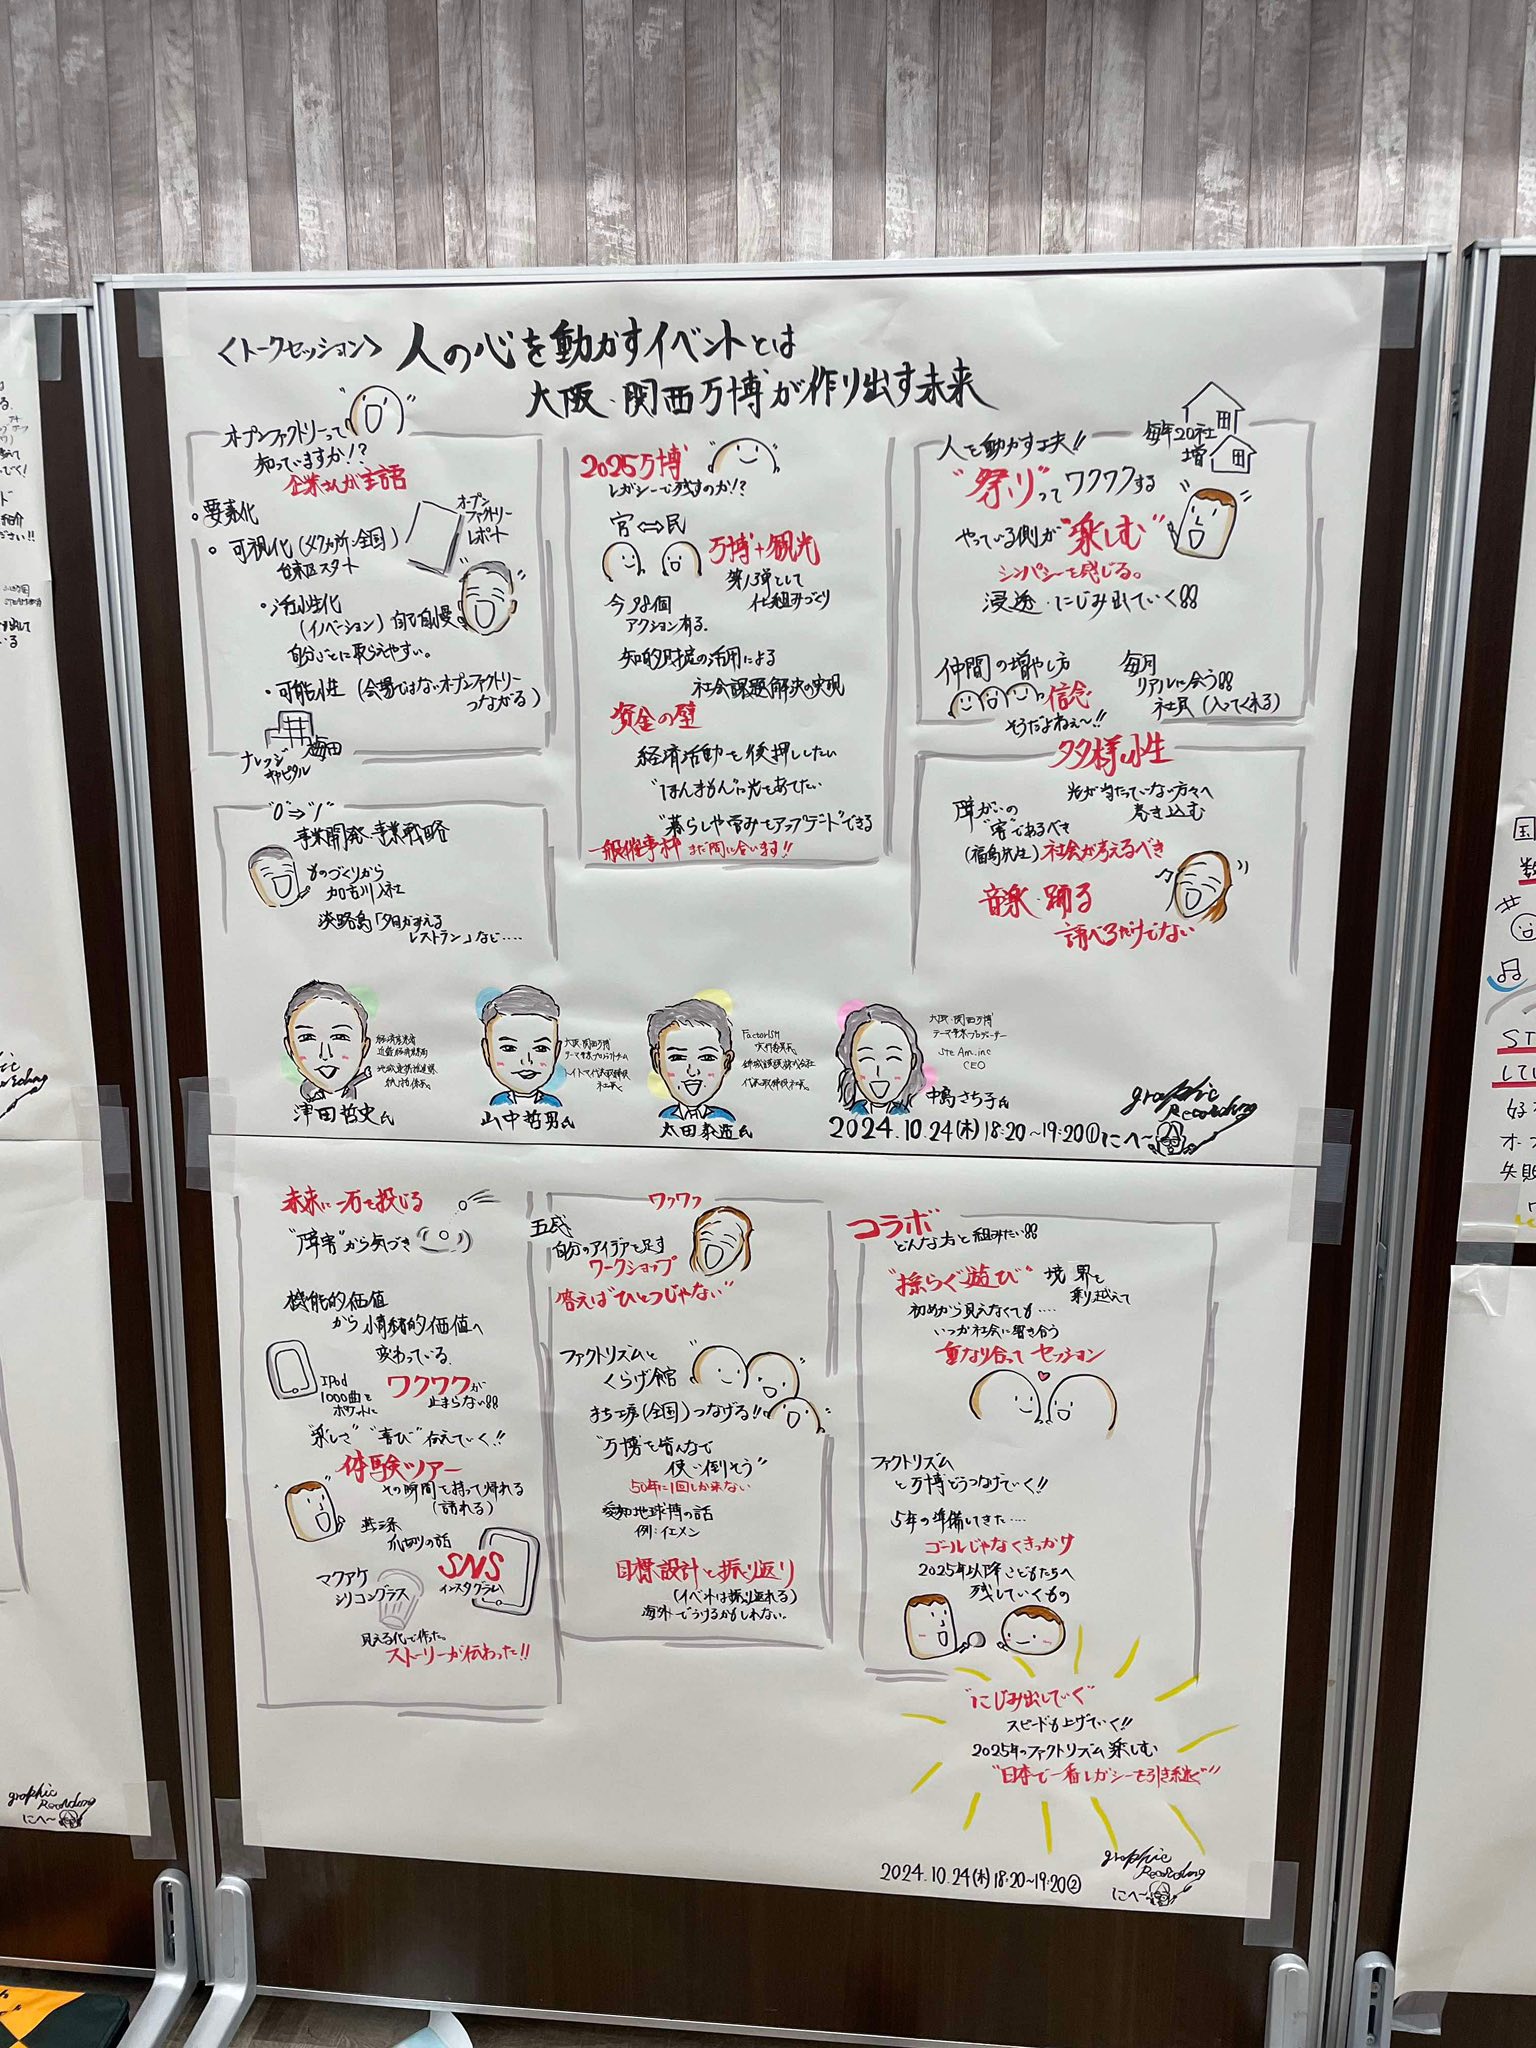 <トークセッション> 人の心を動かすイベントとは
大阪・関西万博が作り出す未来
オープンファクトリーって
知っていますか!?
企業さんが主語
・要素化
・可視化
台東区スタート
オープン
ファクトリー
レポート
・活性化
(イノベーション) 自己自慢
自分ごとに取らえやすい。
・可能性 (会場ではないオープンファクトリー
つながる)
ナレッジ
キャピタル
梅田
"0"⇒"1"
事業開発・事業戦略
ものづくりから
加古川入社
淡路島「夕日がすえる
レストラン」など....
2025万博
レガシーで残すのか!?
官⇔民
万博+観光
第1弾として
仕組みづくり
今98個
アクション有る。
知的財産の活用による
社会課題解決の実現
資金の壁
経済活動を後押ししたい
"ほんまもん"に光をあてたい
"暮らしや営みをアップデート"できる
一般催事枠 まだ間に合います!!
人を動かす工夫!!
毎年20社
増
"祭り"ってワクワクする
やっている側が"楽しむ"
シンパシーを感じる。
浸透・にじみ出ていく!!
仲間の増やし方
信念
そうだよねぇ〜!!
毎月
リアルに会う!!
社員(入ってくれる)
多様性
光が当たっていない方々へ
巻き込む
障がいの
"害"であるべき
(福島先生) 社会が考えるべき
音楽・踊る
調べるだけでない
津田哲史氏
大阪・関西万博
山中哲男氏
FactorISM
実行委員長
代表取締役社長
太田泰造氏
大阪・関西万博
テーマ事業プロデューサー
steAm.inc
CEO
中島さち子氏
2024.10.24(木)18:20〜19:20①
graphic
Recording
にへ〜
未来に一石を投じる
"障害"から気づき
機能的価値
から情緒的価値へ
変わっている。
IPod
1000曲を
ポケットに
ワクワクが
止まらない!!
"楽しさ" "喜び"伝えていく!!
体験ツアー
その瞬間を持って帰れる
(語れる)
燕三条
爪切りの話
マクアケ
シリコングラス
SNS
インスタグラム
見える化で作った。
ストーリーが伝わった!!
ワクワク
五感
自分のアイデアを足す
ワークショップ
答えは"ひとつじゃない"
ファクトリズムと
くらげ館
まち工房(全国)つなげる!!
"万博を皆んなで
使い倒そう"
50年に1回しか来ない
愛知地球博の話
例:イエメン
目標設計と振り返り
(イベントは振り返れる)
海外でうけるかもしれない。
コラボ
どんな方と組みたい!!
"揺らぐ遊び" 境界を
乗り越えて
初めから見えなくても....
いつか社会に響き合う
重なり合って セッション
ファクトリズム
と万博どうつなげていく!!
5年の準備してきた....
ゴールじゃなくきっかけ
2025年以降こどもたちへ
残していくもの
"にじみ出していく"
スピードも上げていく!!
2025年のファクトリズム楽しむ
"日本で一番レガシーを引き継ぐ"
2024.10.24(木)18:20〜19:20②
graphic
Recording
にへ〜
graphic
Recording
にへ〜